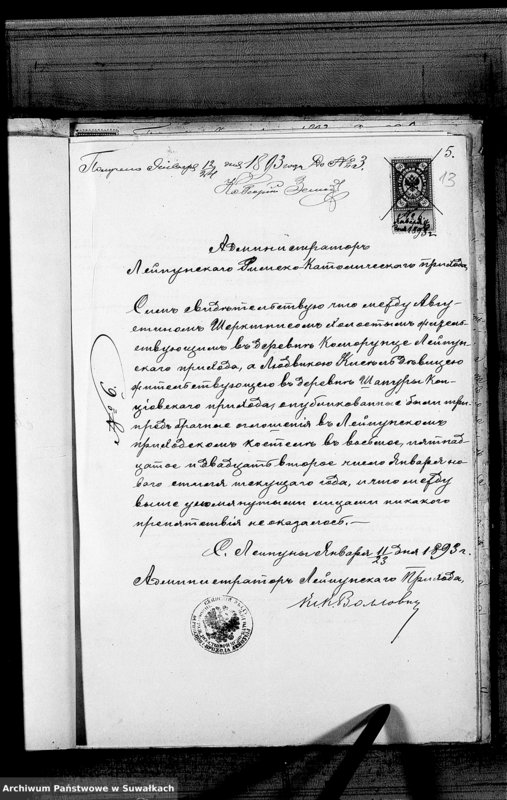 5.
Получено Января 12/24 дня 1893 года До № 3
13
Администраторъ
Лейпунскаго Римско-Католическаго прихода,
Симъ свидѣтельствую что между Авгу-
стиномъ холостымъ житель-
ствующимъ въ деревнѣ Лейпун-
скаго прихода, а Людвикою дѣвицею
жительствующею въ деревнѣ Шапуры Коп-
ціовскаго прихода, опубликованные были три
предъбрачные оглошенія въ Лейпунскомъ
приходскомъ костелѣ въ восьмое, пятнад-
цатое и двадцать второе число Января но-
ваго стиля текущаго года, и что между
выше упомянутыми лицами никакого
препятствія не оказалось.—
№ 6.
С. Лейпуны Января 11/23 дня 1893 г.
Администраторъ Лейпунскаго Прихода,
Archiwum Państwowe w Suwałkach